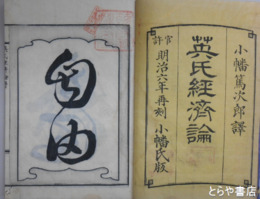 小幡篤次郎譯
英氏經濟論
官許
明治六年再刻
小幡氏版
自由
とらや書店